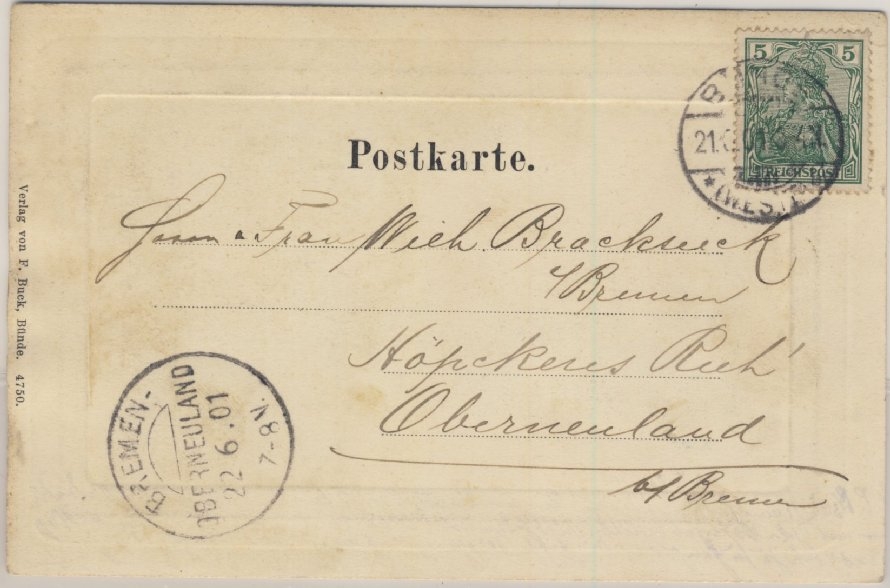 5 5
REICHSPOST
21.6.01
* (WESTF.)
Postkarte.
Herrn & Frau Wilh. Bracksieck
b/Bremen
Höpckens Ruh'
Oberneuland
b/Bremen
Verlag von F. Buck, Bünde. 4750.
BREMEN-
OBERNEULAND
22 6.01
7-8V.